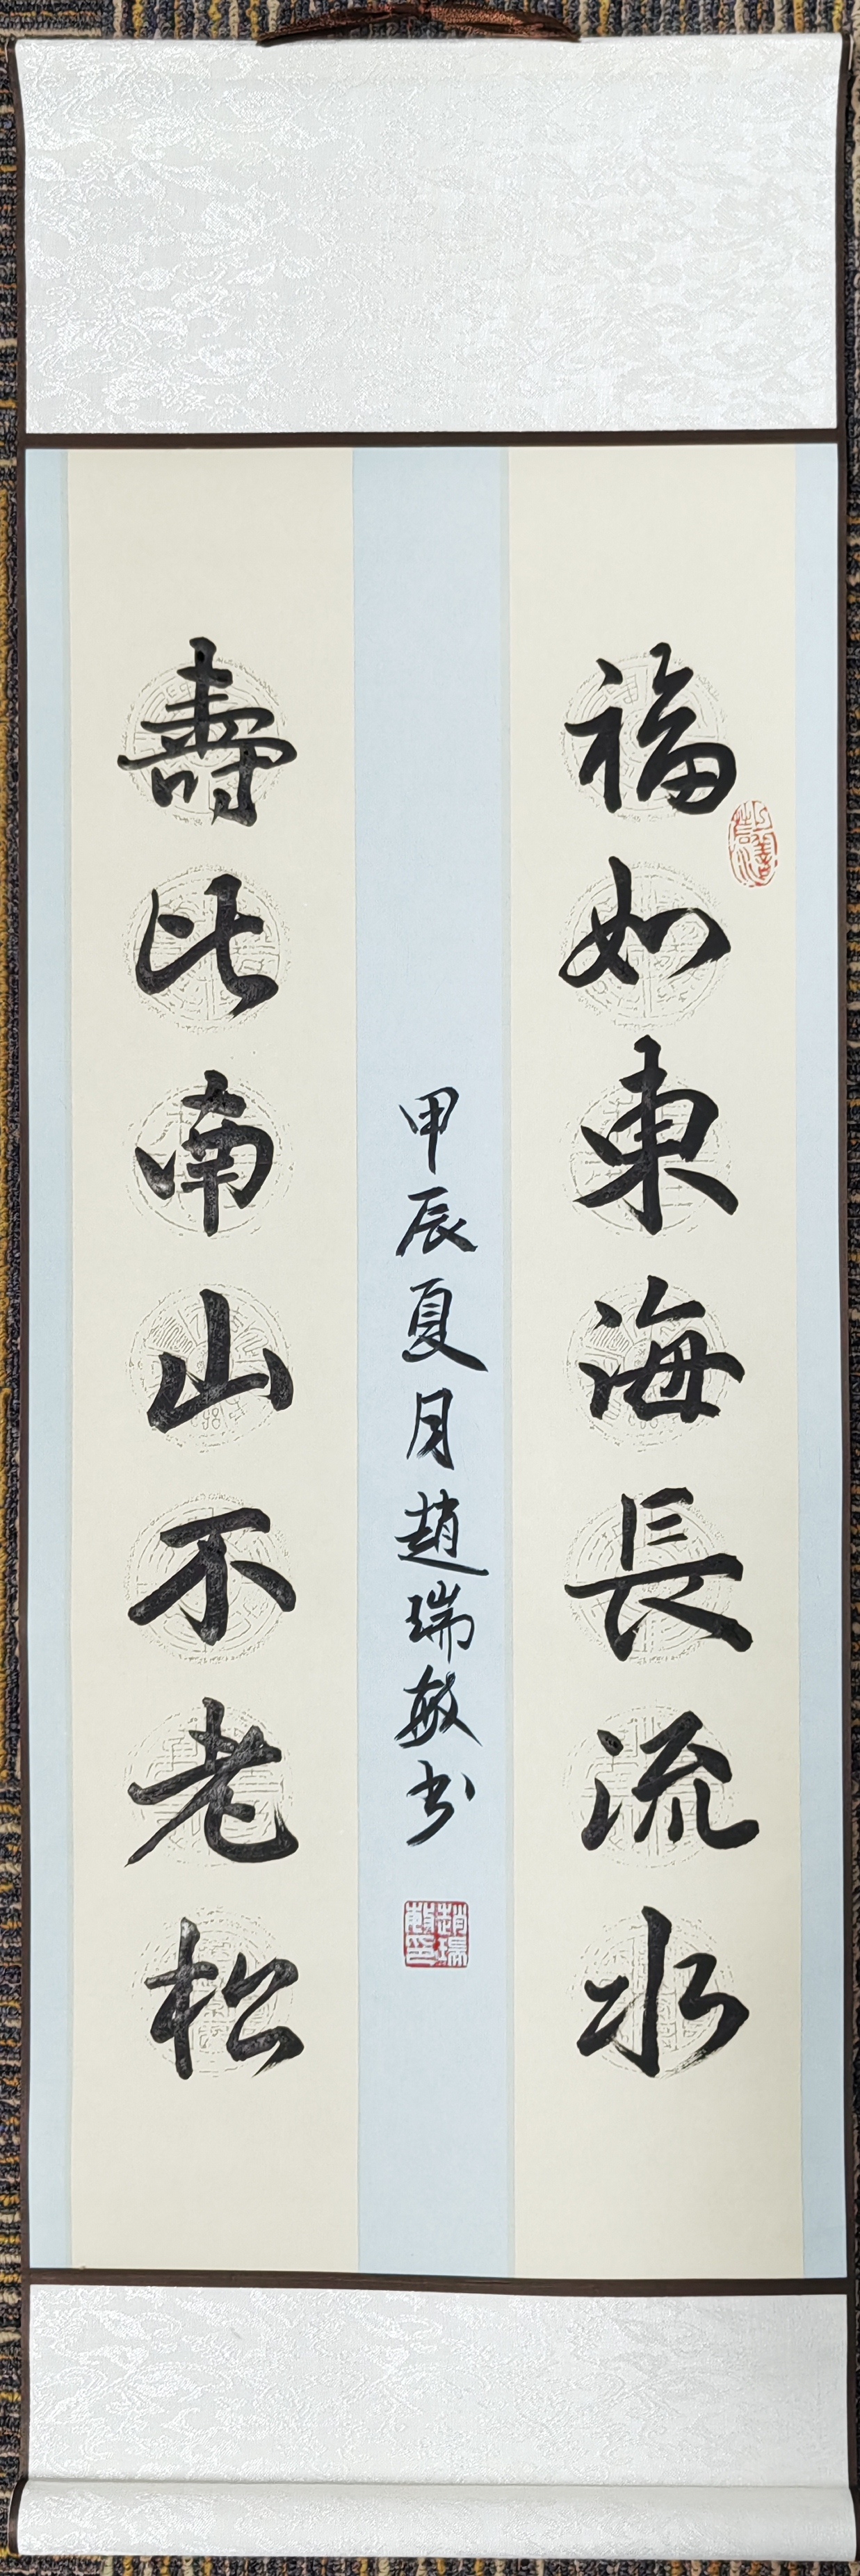 福如東海長流水
壽比南山不老松
甲辰夏月趙瑞敏书
趙瑞敏印